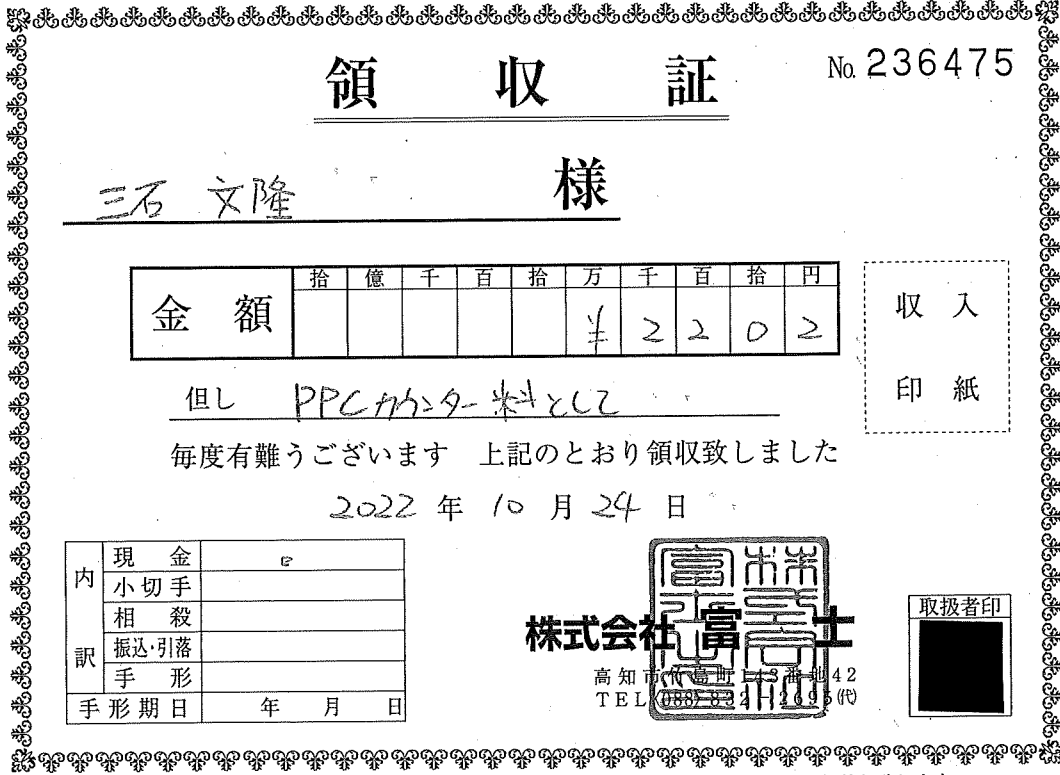 領収証
No. 236475
三石 文隆 様
金額
拾 億 千 百 拾 万 千 百 拾 円
¥ 2 2 0 2
収入
印紙
但し PPCカウンター料として
毎度有難うございます 上記のとおり領収致しました
2022 年 10 月 24 日
内訳
現金
小切手
相殺
振込・引落
手形
手形期日 年 月 日
株式会社 富士
高知市竹島町143番地42
TEL(088)832-2695(代)
取扱者印